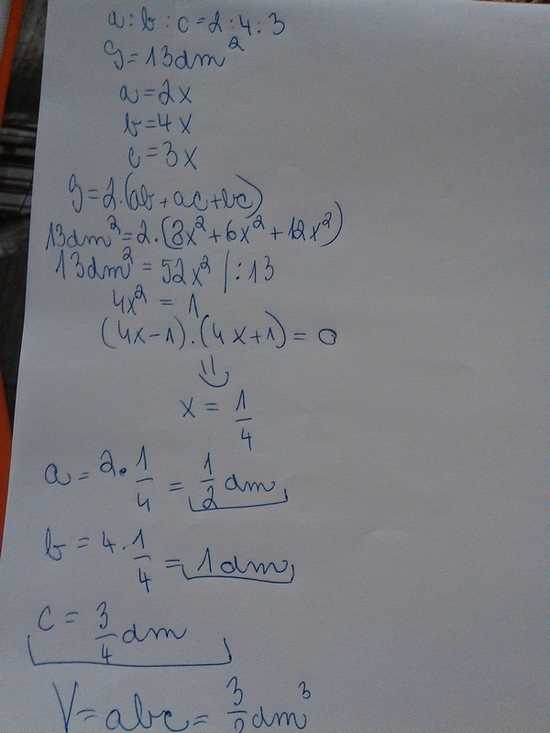 a:b:c=2:4:3
S=13dm²
a=2x
b=4x
c=3x
S=2.(ab+ac+bc)
13dm²=2.(8x²+6x²+12x²)
13dm²=52x² |:13
4x²=1
(4x-1).(4x+1)=0
x=1/4
a=2•1/4=1/2dm
b=4.1/4=1dm
c=3/4dm
V=abc=3/2dm³